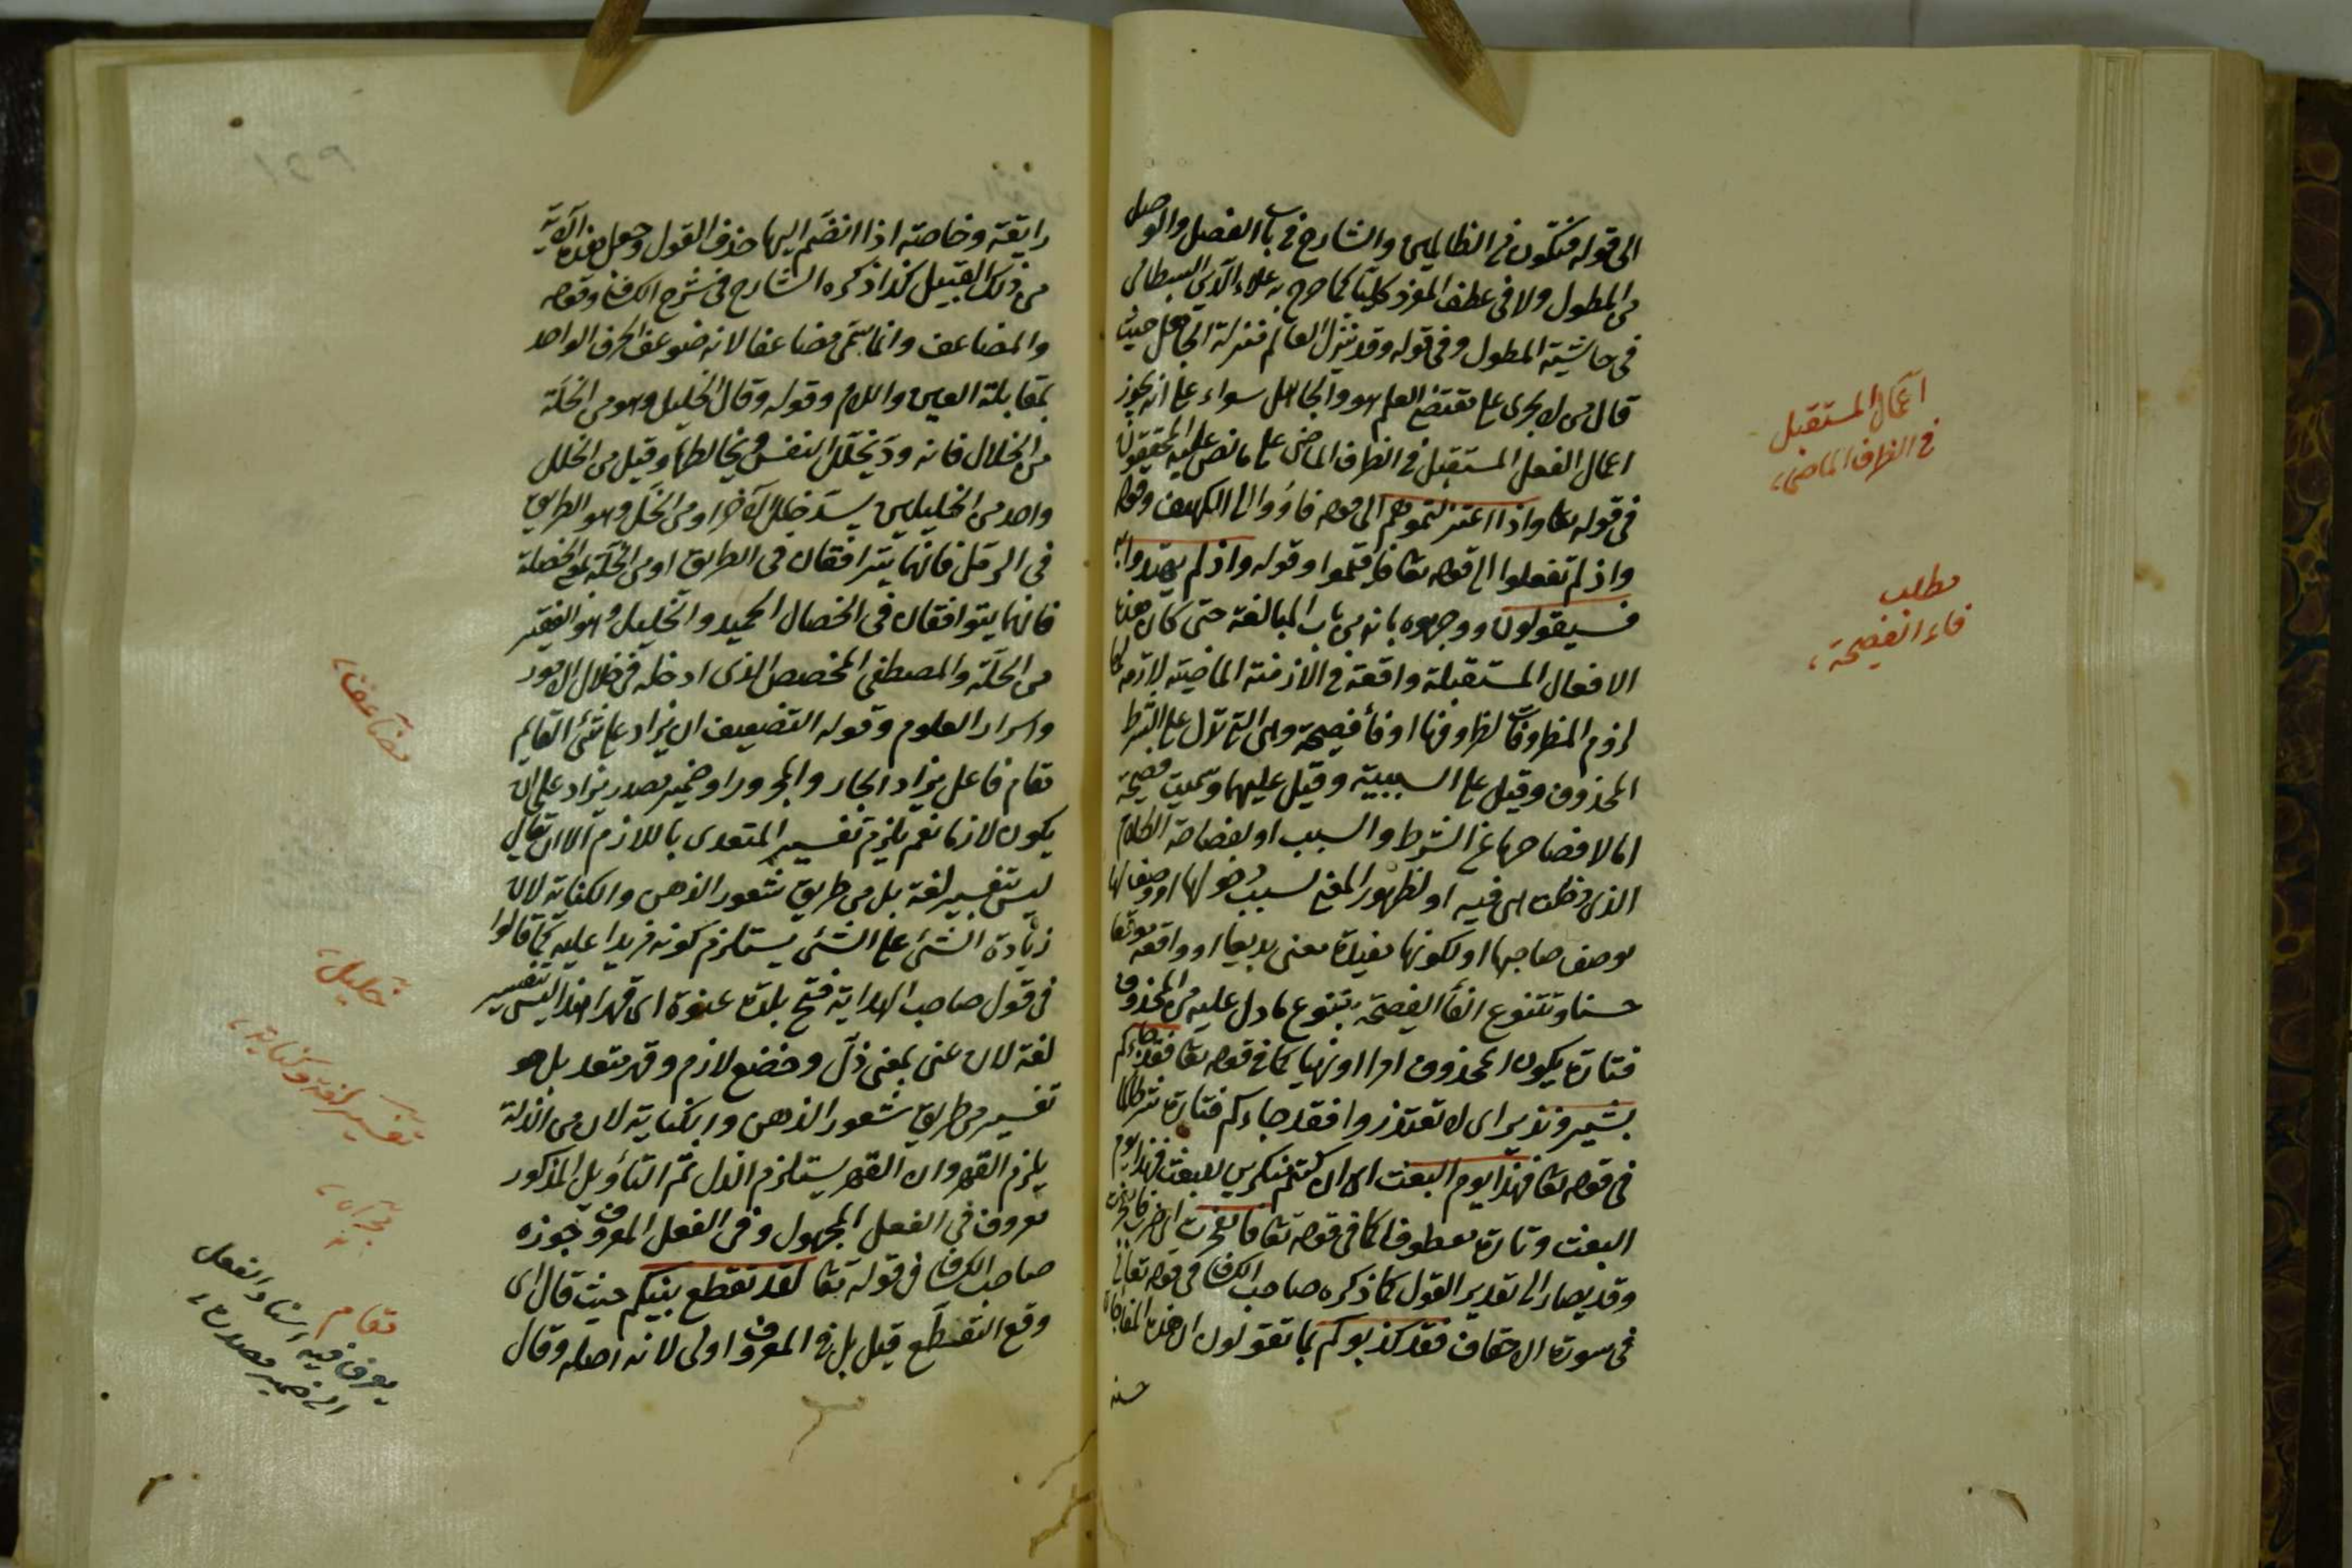 الى قوله فتكون من الظالمين والشارح فى باب الفصل والوصل
من المطول ولا فى عطف المفرد كليّا كما صرح به علاء الدين البسطامى
فى حاشية المطول وفى قوله وقد ينزل العالم منزلة الجاهل حيث
قال من لا يجرى على مقتضى العلم هو والجاهل سواء على انه يجوز
اعمال الفعل المستقبل فى الظرف الماضى على ما نص عليه المحققون
فى قوله تعا واذ اعتزلتموهم الى قوله فاووا الى الكهف وقوله
واذ لم تفعلوا الى قوله تعا فاقيموا وقوله واذ لم يهتدوا به
فسيقولون ووجهوه بانه من باب المبالغة حتى كان هذه
الافعال المستقبلة واقعة فى الازمنة الماضية لازمة لها
لزوم المظروفات لظروفها او فأ فصيحة وهى التى تدل على الشرط
المحذوف وقيل على السببية وقيل عليهما وسميت فصيحة
اما لافصاحها عن الشرط والسبب او لفصاحة الكلام
الذى دخلت هى فيه او لظهور المعنى لسبب دخولها او وصفا لها
بوصف صاحبها او لكونها مفيدة معنى بديعا او واقعة موقعا
حسنا وتتنوع الفأ الفصيحة بتنوع ما دل عليه من المحذوف
فتارة يكون المحذوف امرا او نهيا كما فى قوله تعا فقد جاءكم
بشير ونذير اى لا تعتذروا فقد جاءكم فتارة شرطا كما
فى قوله تعا فهذا يوم البعث اى ان كنتم منكرين للبعث فهذا يوم
البعث وتارة معطوفا كما فى قوله تعا فانفجرت اى ضرب فانفجرت
وقد يصار الى تقدير القول كما ذكره صاحب الكشاف فى قوله تعالى
فى سورة الاحقاف فقد كذبوكم بما تقولون ان هذه المفاجاة
حسنة
اعمال المستقبل
فى الظرف الماضى
مطلب
فاء الفصيحة
رايقة وخاصته اذا انضم اليها حذف القول وجعل هذه الآية
من ذلك القبيل كذا ذكره الشارح فى شرح الكشاف وقوله
والمضاعف وانما يسمى مضاعفا لانه ضوعف الحرف الواحد
بمقابلة العين واللام وقوله وقال الخليل وهو من الخلة
من الخلال فانه ود يتخلل النفس ويخالطها وقيل من الخلل
واحد من الخليلين يسد خلل الآخر او من الخل وهو الطريق
فى الرمل فانهما يترافقان فى الطريق او من الخلة بمعنى الخصلة
فانهما يتوافقان فى الخصال الحميد والخليل وهو الفقير
من الخلة والمصطفى المخصص الذى ادخله فى خلال الامور
واسرار العلوم وقوله التضعيف ان يزاد على شئ القايم
مقام فاعل يزاد الجار والمجرور او ضمير مصدر يزاد على ان
يكون لازما نعم يلزم تفسير المتعدى باللازم الا ان يقال
ليس تفسير لغة بل من طريق شعور الذهن والكناية لان
زيادة الشئ على الشئ يستلزم كونه مزيدا عليه كما قالوا
فى قول صاحب الهداية فتح بلدة عنوة اى قهرا هذا ليس تفسير
لغة لان عنى بمعنى ذل وخضع لازم وقهر متعد بل هو
تفسير من طريق شعور الذهن والكناية لان من الذلة
يلزم القهر وان القهر يستلزم الذل ثم التأويل المذكور
معروف فى الفعل المجهول وفى الفعل المعروف جوزه
صاحب الكشاف فى قوله تعا لقد تقطع بينكم حيث قال اى
وقع التقطع قيل بل فى المعروف اولى لانه اصله وقال
مضاعف
خليل
تفسير لغة وكناية
مقام
يعرف فيه اسناد الفعل
الى ضمير مصدره